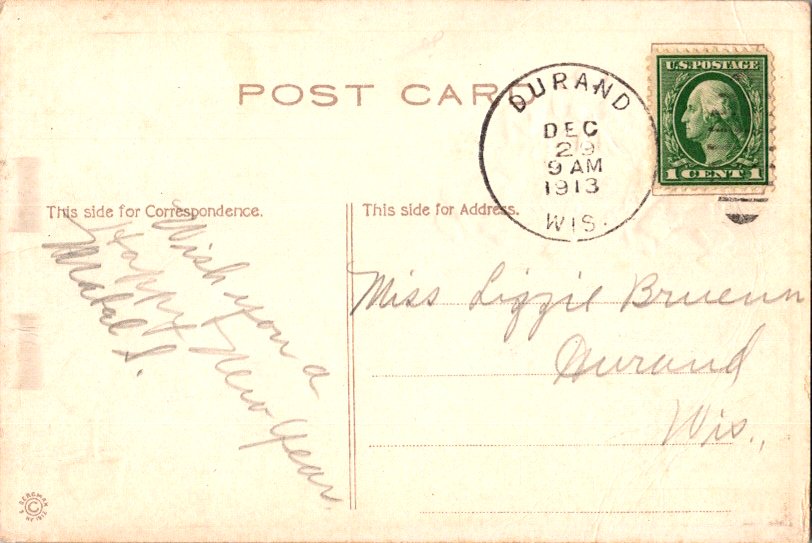 POST CARD
DURAND
DEC
29
9 AM
1913
WIS.
U.S. POSTAGE
1 CENT 1
This side for Correspondence.
This side for Address.
Wish you a
Happy New Year
Mabel S.
Miss Lizzie Bruenn
Durand
Wis.,
BERGMAN
©